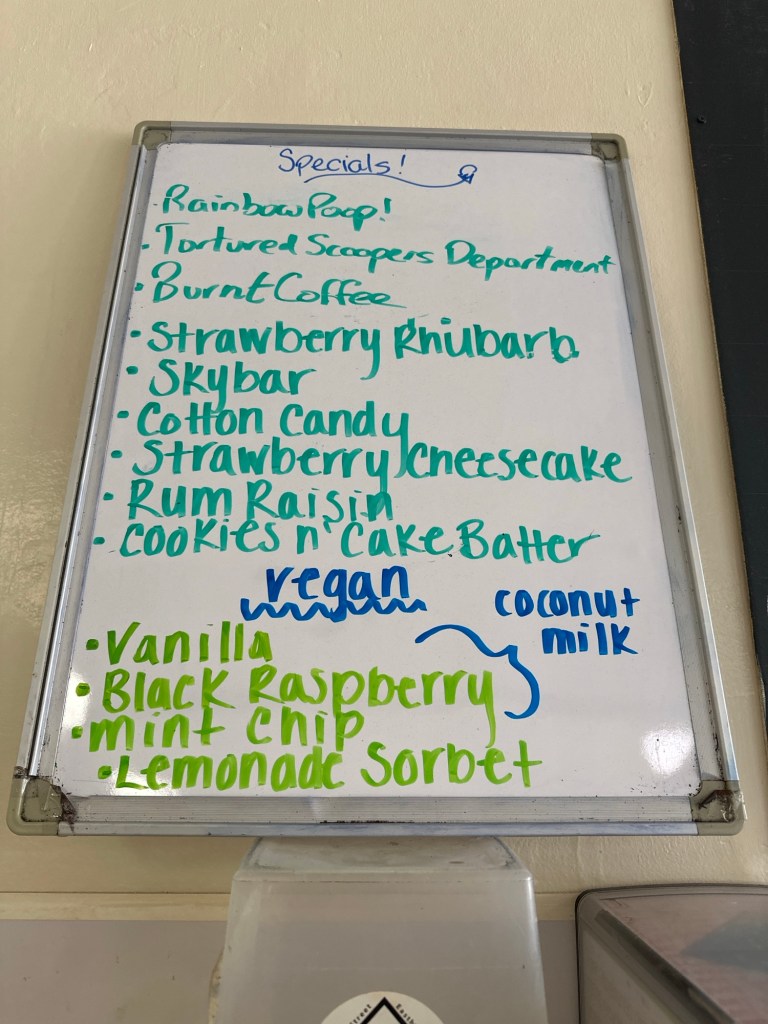 Specials!
·Rainbow Poop!
·Tortured Scoopers Department
·Burnt Coffee
·Strawberry Rhubarb
·Skybar
·Cotton Candy
·Strawberry Cheesecake
·Rum Raisin
·Cookies n' Cake Batter
vegan
coconut
milk
·Vanilla
·Black Raspberry
·mint chip
·Lemonade Sorbet
Street